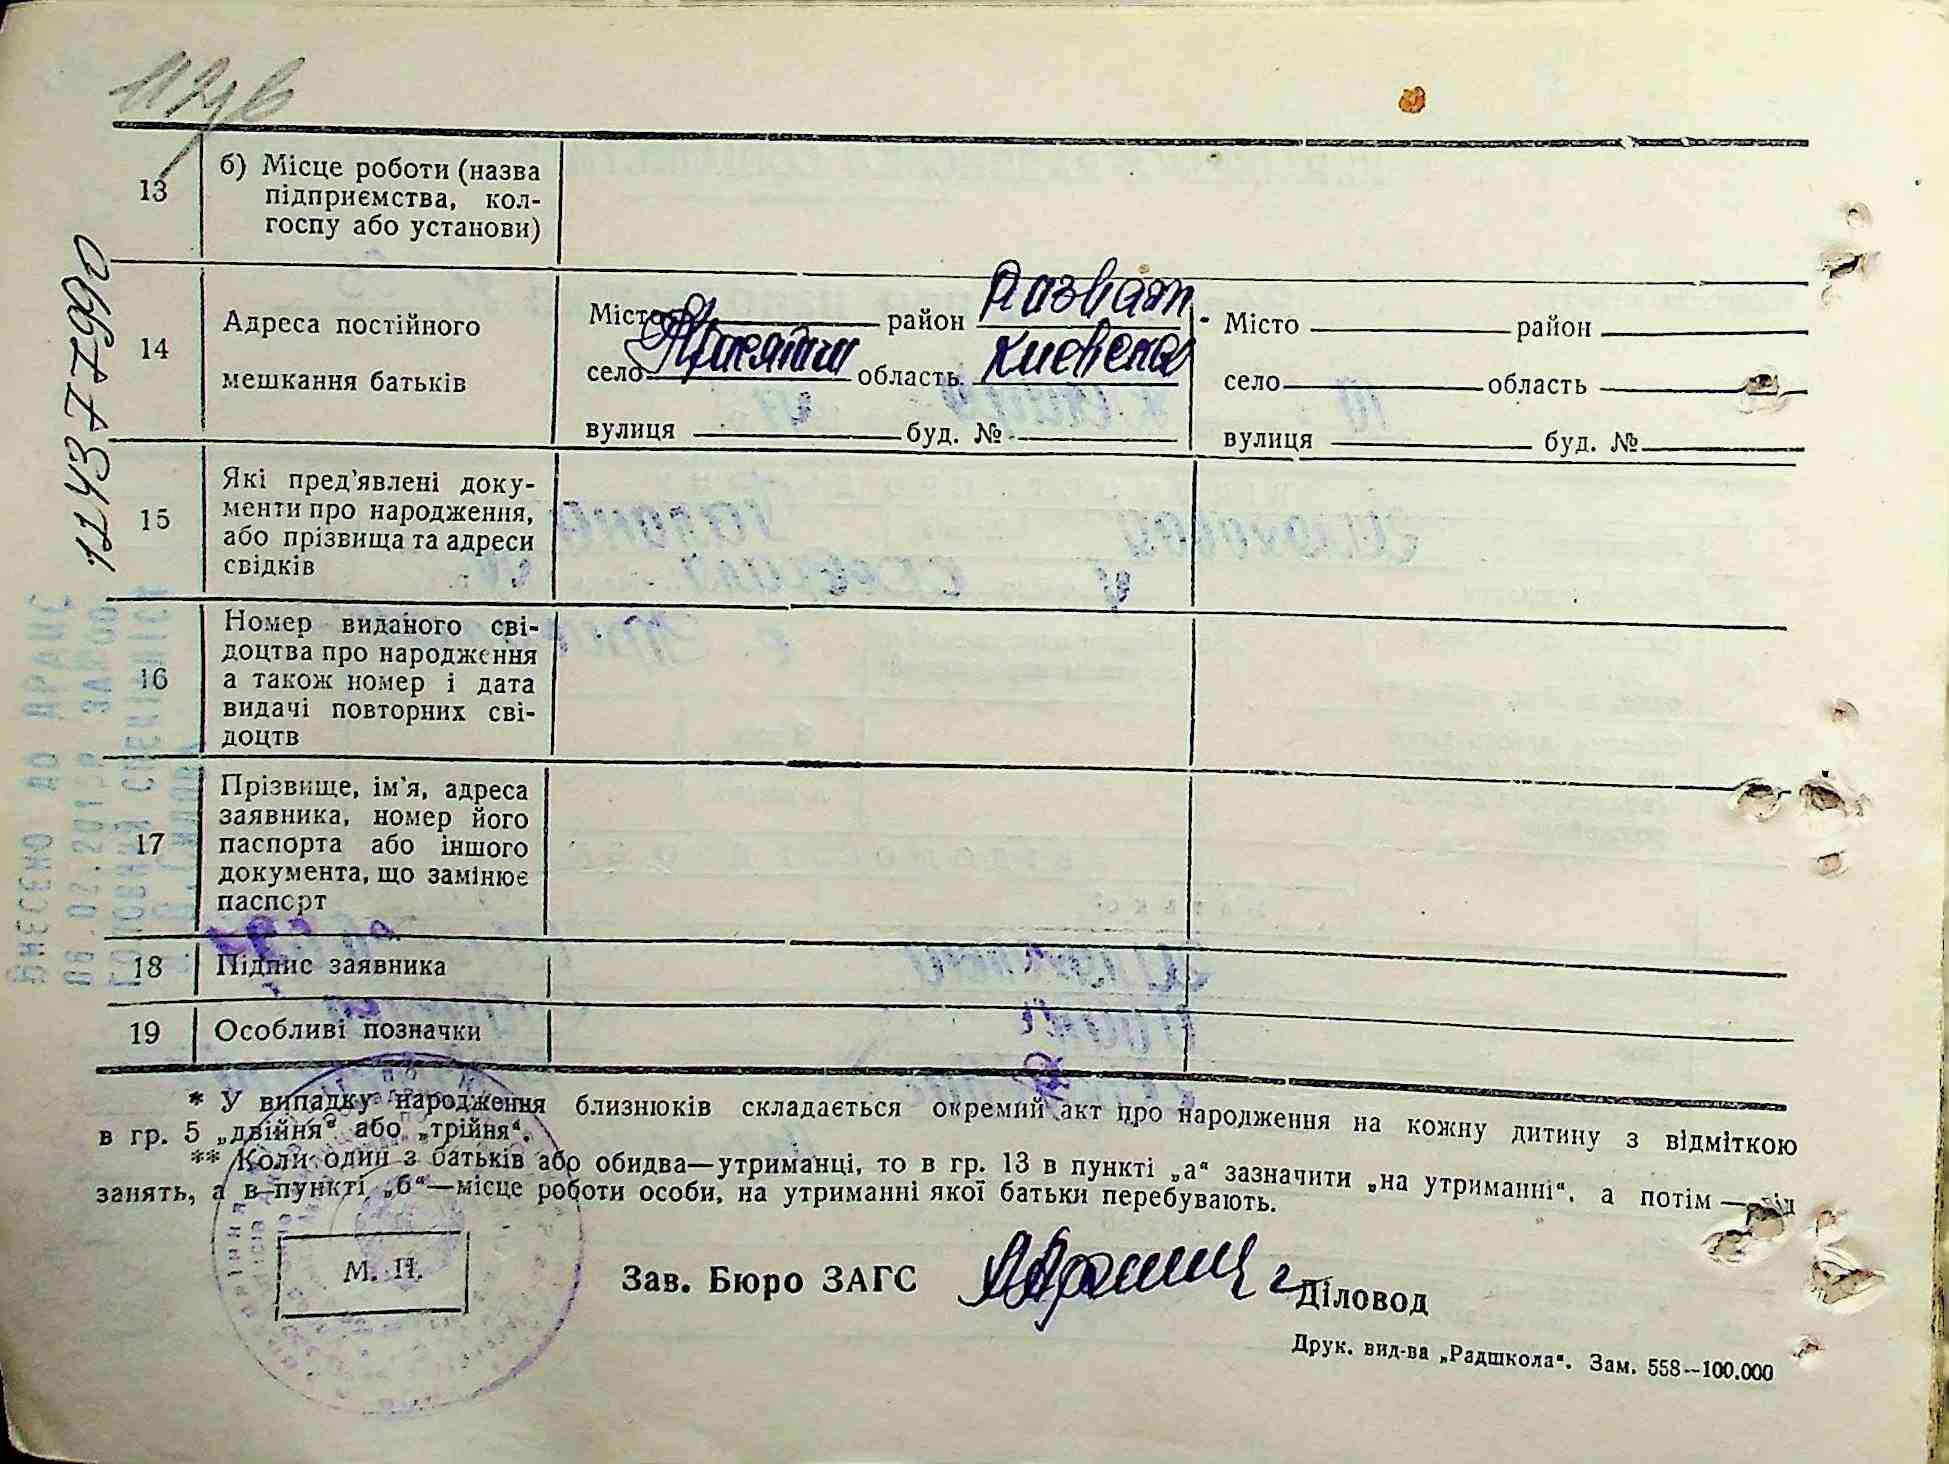 13
б) Місце роботи (назва
підприємства, кол-
госпу або установи)
14
Адреса постійного
мешкання батьків
Місто район Розваж
село область Киевска
вулиця буд. №
Місто район
село область
вулиця буд. №
114377990
15
Які пред'явлені доку-
менти про народження,
або прізвища та адреси
свідків
16
Номер виданого сві-
доцтва про народження
а також номер і дата
видачі повторних сві-
доцтв
17
Прізвище, ім'я, адреса
заявника, номер його
паспорта або іншого
документа, що замінює
паспорт
18
Підпис заявника
19
Особливі позначки
* У випадку народження близнюків складається окремий акт про народження на кожну дитину з відміткою
в гр. 5 „двійня“ або „трійня“.
** Коли один з батьків або обидва—утриманці, то в гр. 13 в пункті „а“ зазначити „на утриманні“, а потім — від
занять, а в пункті „б“—місце роботи особи, на утриманні якої батьки перебувають.
М. П.
Зав. Бюро ЗАГС
Діловод
Друк. вид-ва „Радшкола“. Зам. 558—100.000